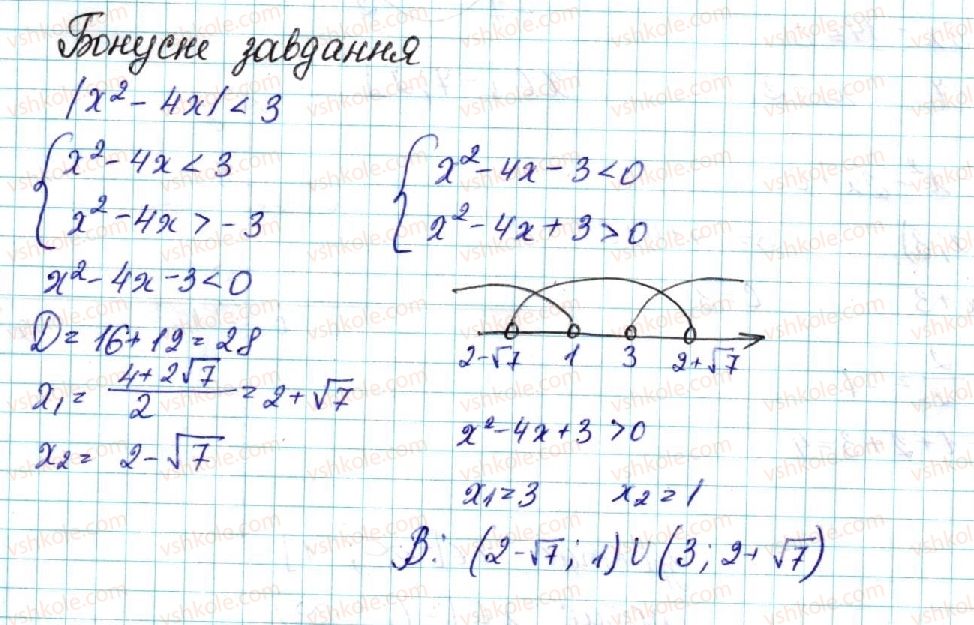 Бонусне завдання
|x² - 4x| < 3
{ x² - 4x < 3
x² - 4x > -3
{ x² - 4x - 3 < 0
x² - 4x + 3 > 0
x² - 4x - 3 < 0
D = 16 + 12 = 28
x₁ = (4 + 2√7)/2 = 2 + √7
x₂ = 2 - √7
2-√7 1 3 2+√7
x² - 4x + 3 > 0
x₁ = 3 x₂ = 1
В: (2-√7; 1) U (3; 2+√7)
vshkole.com